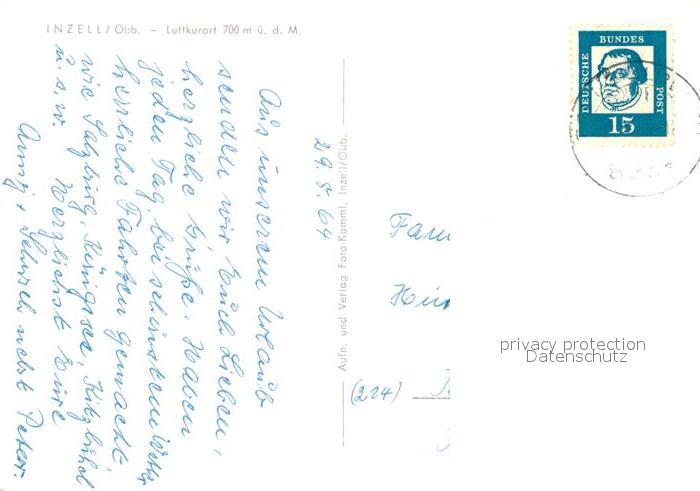 INZELL/Obb. – Luftkurort 700 m ü. d. M.
29.5.64
Aus unserem Urlaub
senden wir Euch Lieben,
herzliche Grüße. Haben
jeden Tag, bei schönstem Wetter
herrliche Fahrten gemacht.
wie Salzburg, Königssee, Kitzbühel
u.s.w. Herzlichst Eure
nebst Peter.
Aufn. und Verlag Foto-Kamml, Inzell/Obb.
DEUTSCHE
BUNDES
POST
15
Fam
(224)
privacy protection
Datenschutz